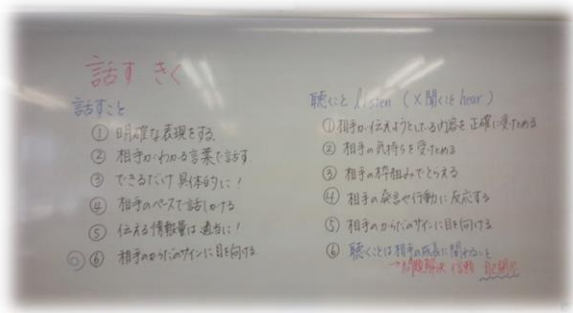 話す きく
話すこと
① 明確な表現をする
② 相手がわかる言葉で話す
③ できるだけ具体的に！
④ 相手のペースで話しかける
⑤ 伝える情報量は適当に！
◎ ⑥ 相手のからだのサインに目を向ける
聴くこと listen (×聞くこと hear)
① 相手が伝えようとしている内容を正確に受けとめる
② 相手の気持ちを受けとめる
③ 相手の枠組みでとらえる
④ 相手の発言や行動に反応する
⑤ 相手のからだのサインに目を向ける
⑥ 聴くことは相手の成長に関わること
→問題解決 信頼